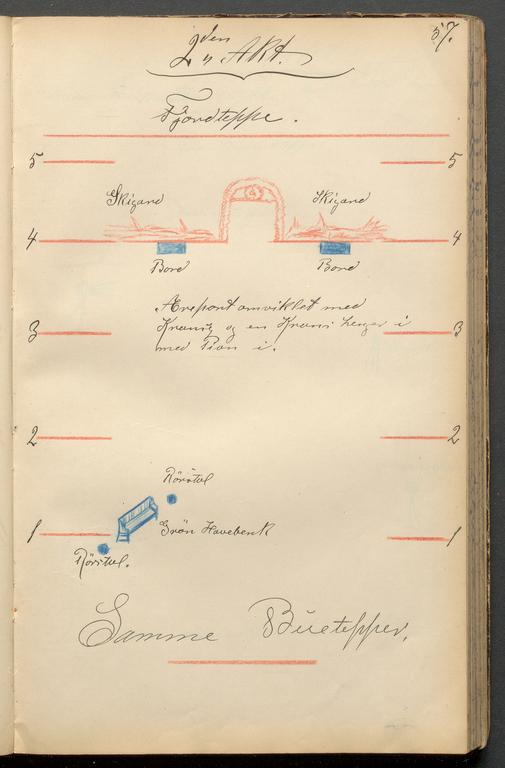 57.
2den Akt.
Fjordteppe.
5 5
Skigard Skigard
4 4
Bord Bord
Æreport omviklet med
3 Krants og en Krans henger i 3
med Pian i.
2 2
Rörstol
1 Grön Havebenk 1
Rörstol.
Samme Buetepper,